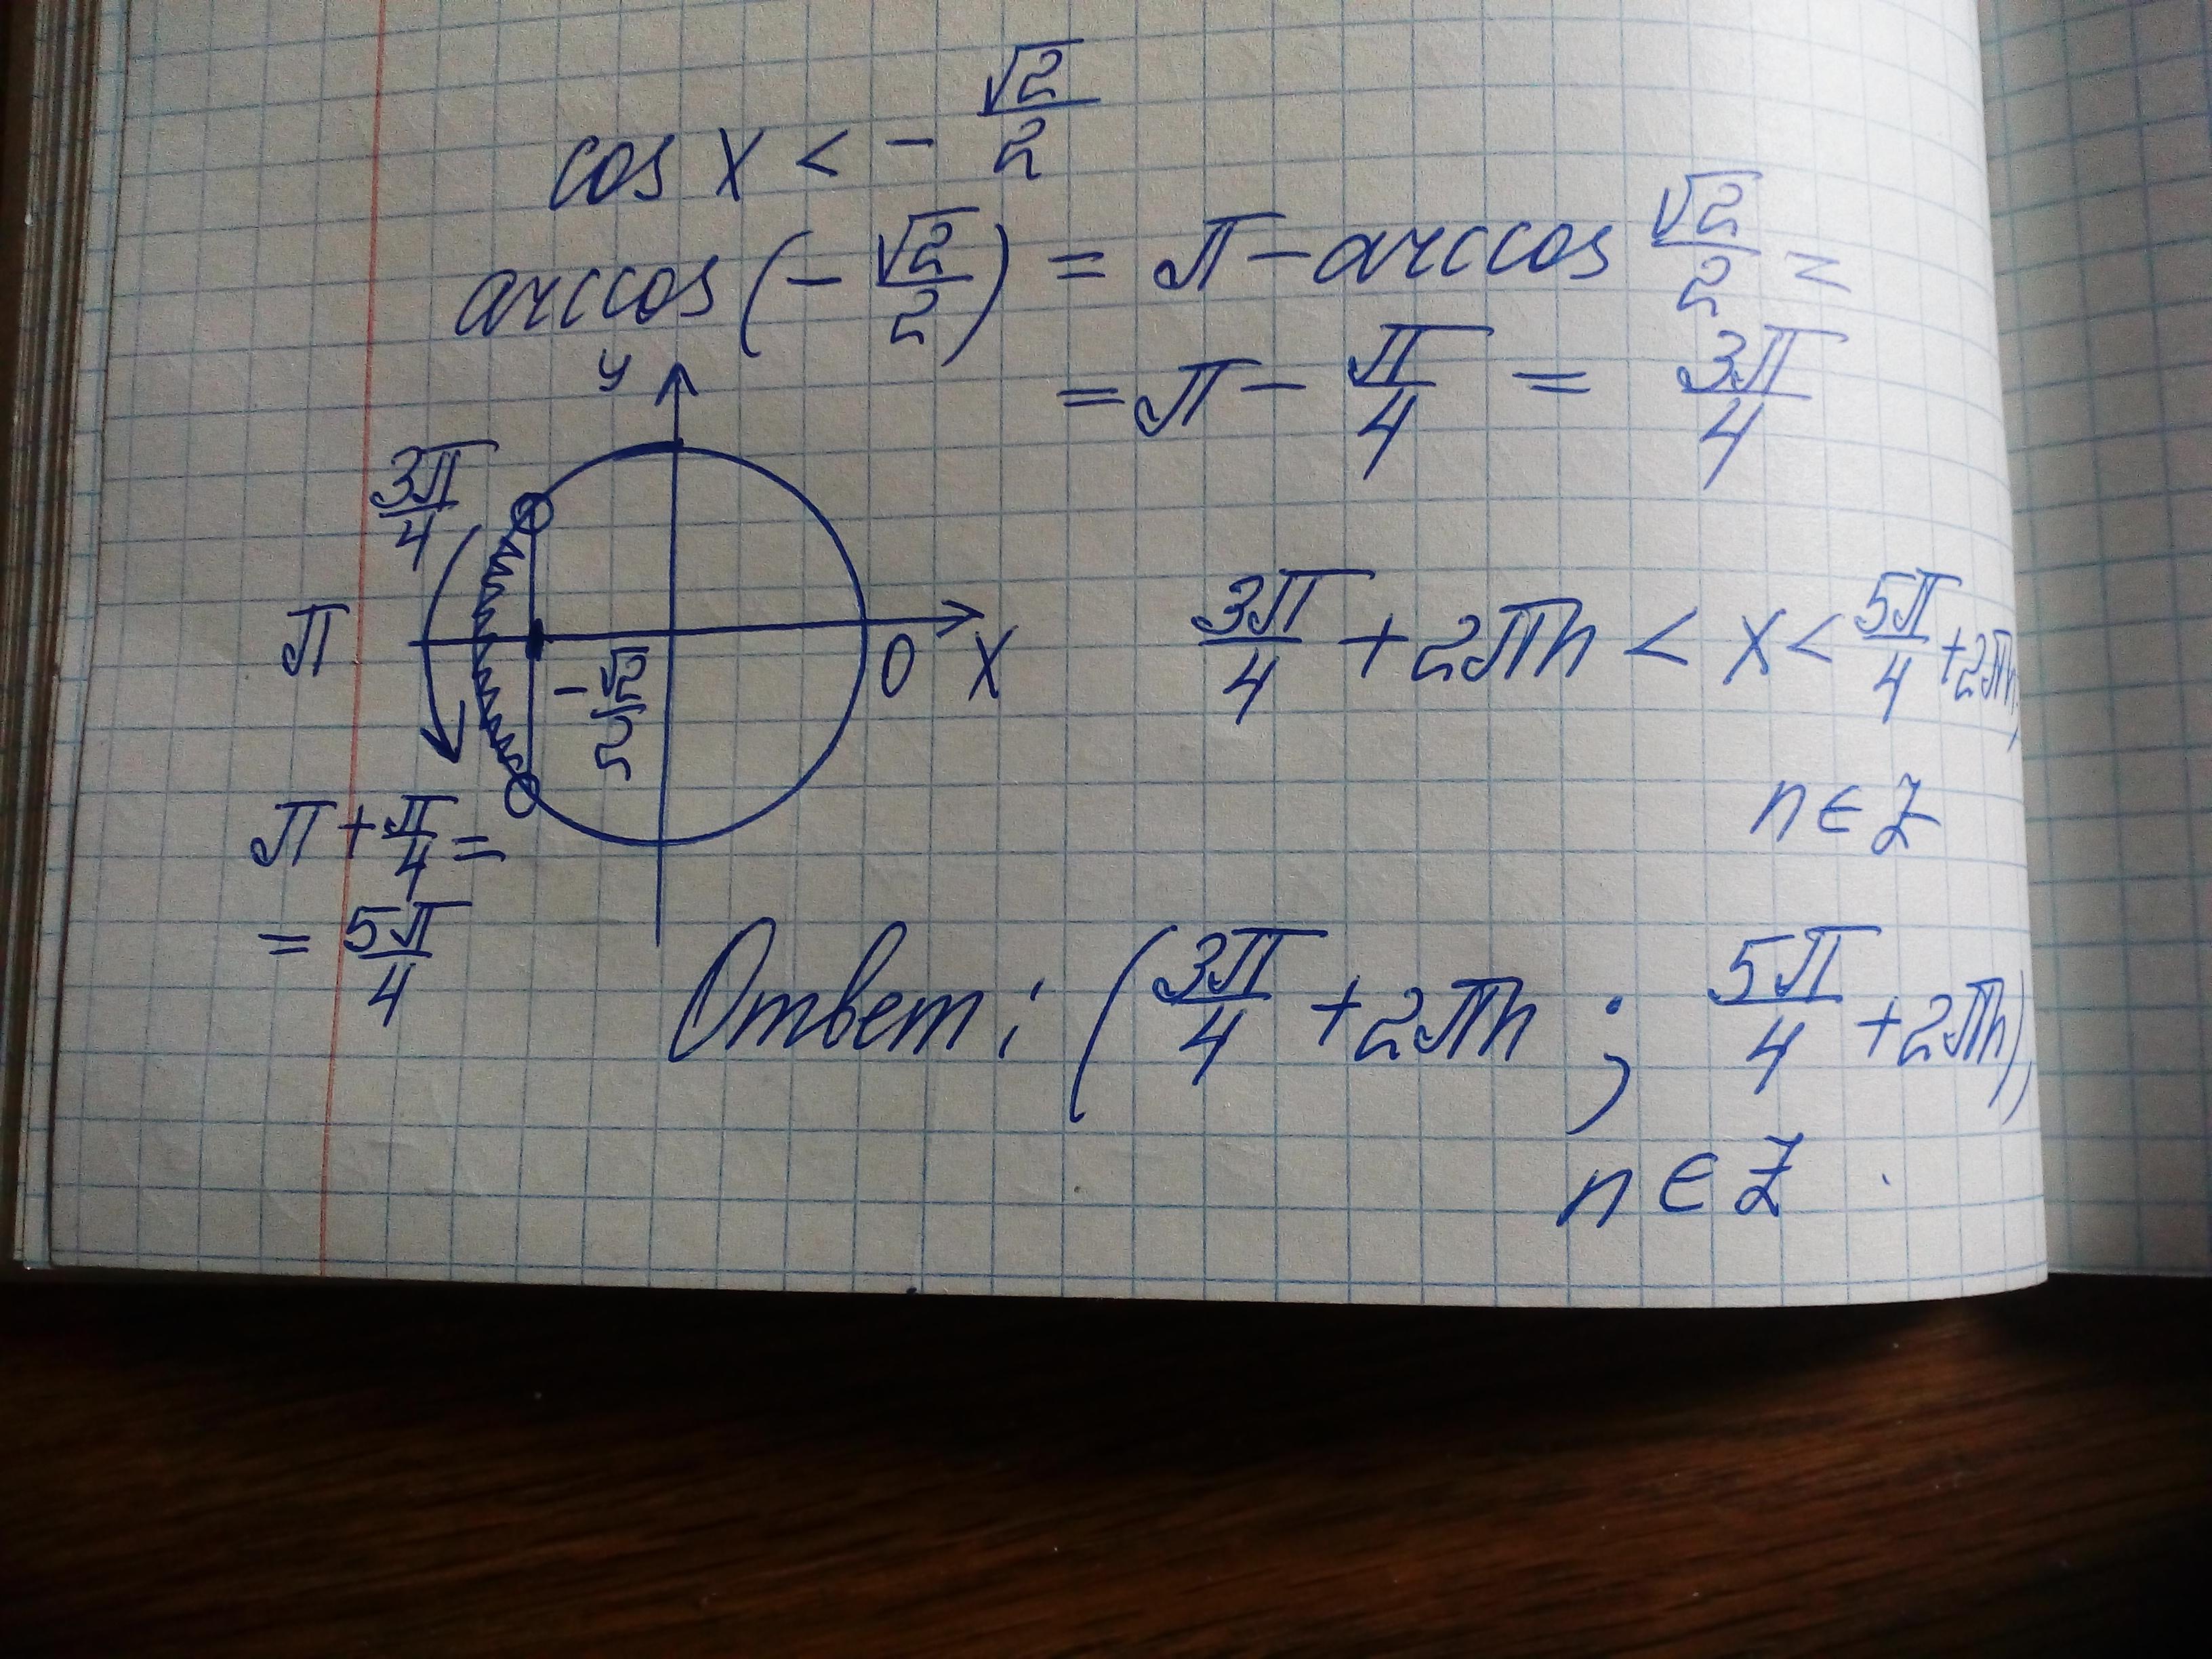 cos x < - √2/2
arccos(- √2/2) = π - arccos √2/2 =
= π - π/4 = 3π/4
y
3π/4
π
- √2/2
0 x
π + π/4 =
= 5π/4
3π/4 + 2πn < x < 5π/4 + 2πn,
n ∈ Z
Ответ: (3π/4 + 2πn ; 5π/4 + 2πn),
n ∈ Z